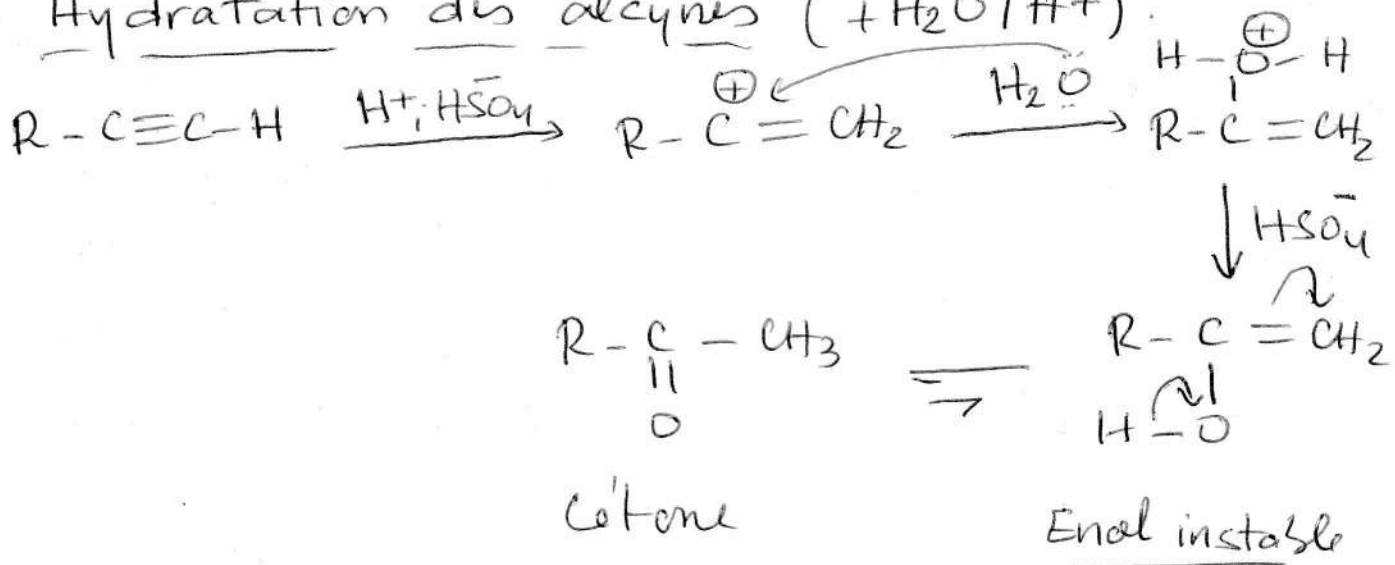 Hydratation des alcynes (+H2O/H+):
R-C≡C-H H+; HSO4- R-C⊕=CH2 H2Ö H-O⊕-H
R-C=CH2
HSO4-
R-C-CH3 R-C=CH2
O H-O
Cétone Enol instable